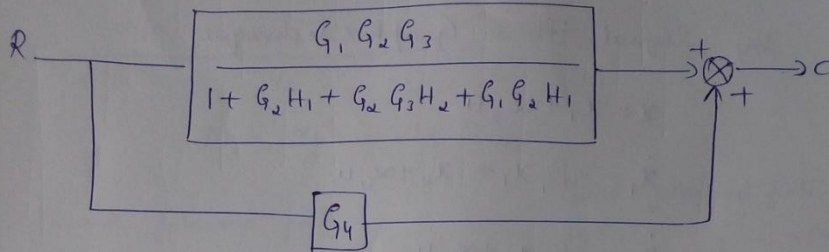 G₁ G₂ G₃
R
+
C
1 + G₂H₁ + G₂ G₃H₂ + G₁ G₂ H₁
+
G₄